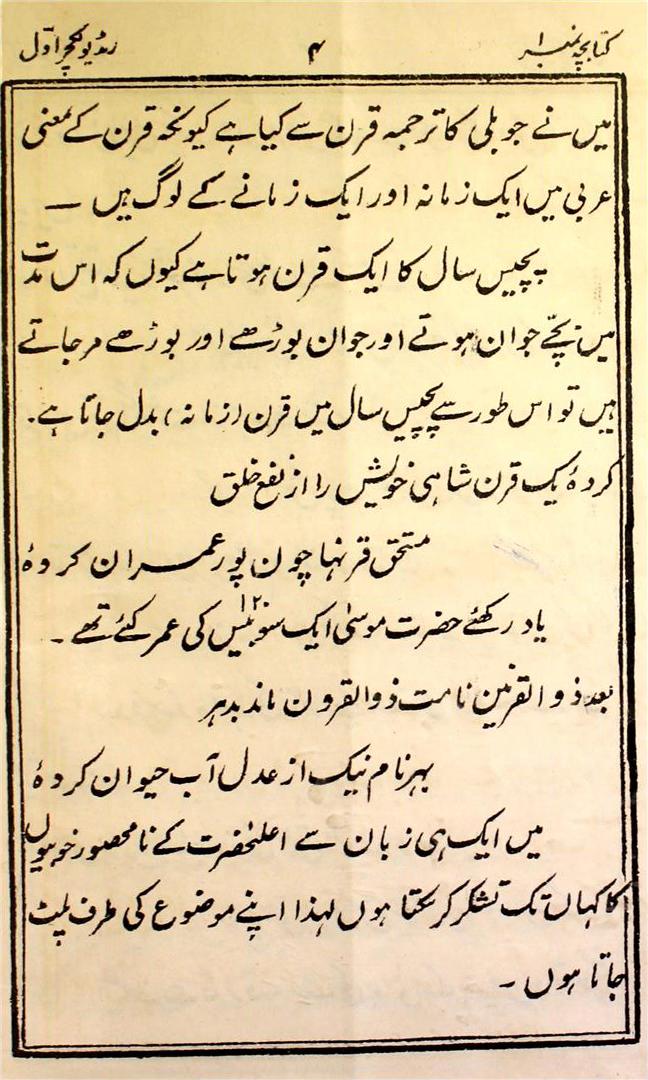 کتابچہ نمبر ۱
۴
ریڈیو لکچر اوّل
میں نے جوبلی کا ترجمہ قرن سے کیا ہے کیونکہ قرن کے معنی
عربی میں ایک زمانہ اور ایک زمانے کے لوگ ہیں —
پچیس سال کا ایک قرن ہوتا ہے کیوں کہ اس مدّت
میں بچّے جوان ہوتے اور جوان بوڑھے اور بوڑھے مرجاتے
ہیں تو اس طور سے پچیس سال میں قرن (زمانہ) بدل جاتا ہے۔
کردۂ یک قرن شاہی خویش را از نفع خلق
مستحق قرنہا چون پور عمران کردۂ
یاد رکھئے حضرت موسیٰ ایک سو بیس ۱۲۰ کی عمر کئے تھے۔
بعد ذوالقرنین نامت ذوالقرون ماند بدہر
بہر نام نیک از عدل آب حیوان کردۂ
میں ایک ہی زبان سے اعلیٰحضرت کے نامحصور خوبیوں
کا کہاں تک تشکر کرسکتا ہوں لہذا اپنے موضوع کی طرف پلٹ
جاتا ہوں۔